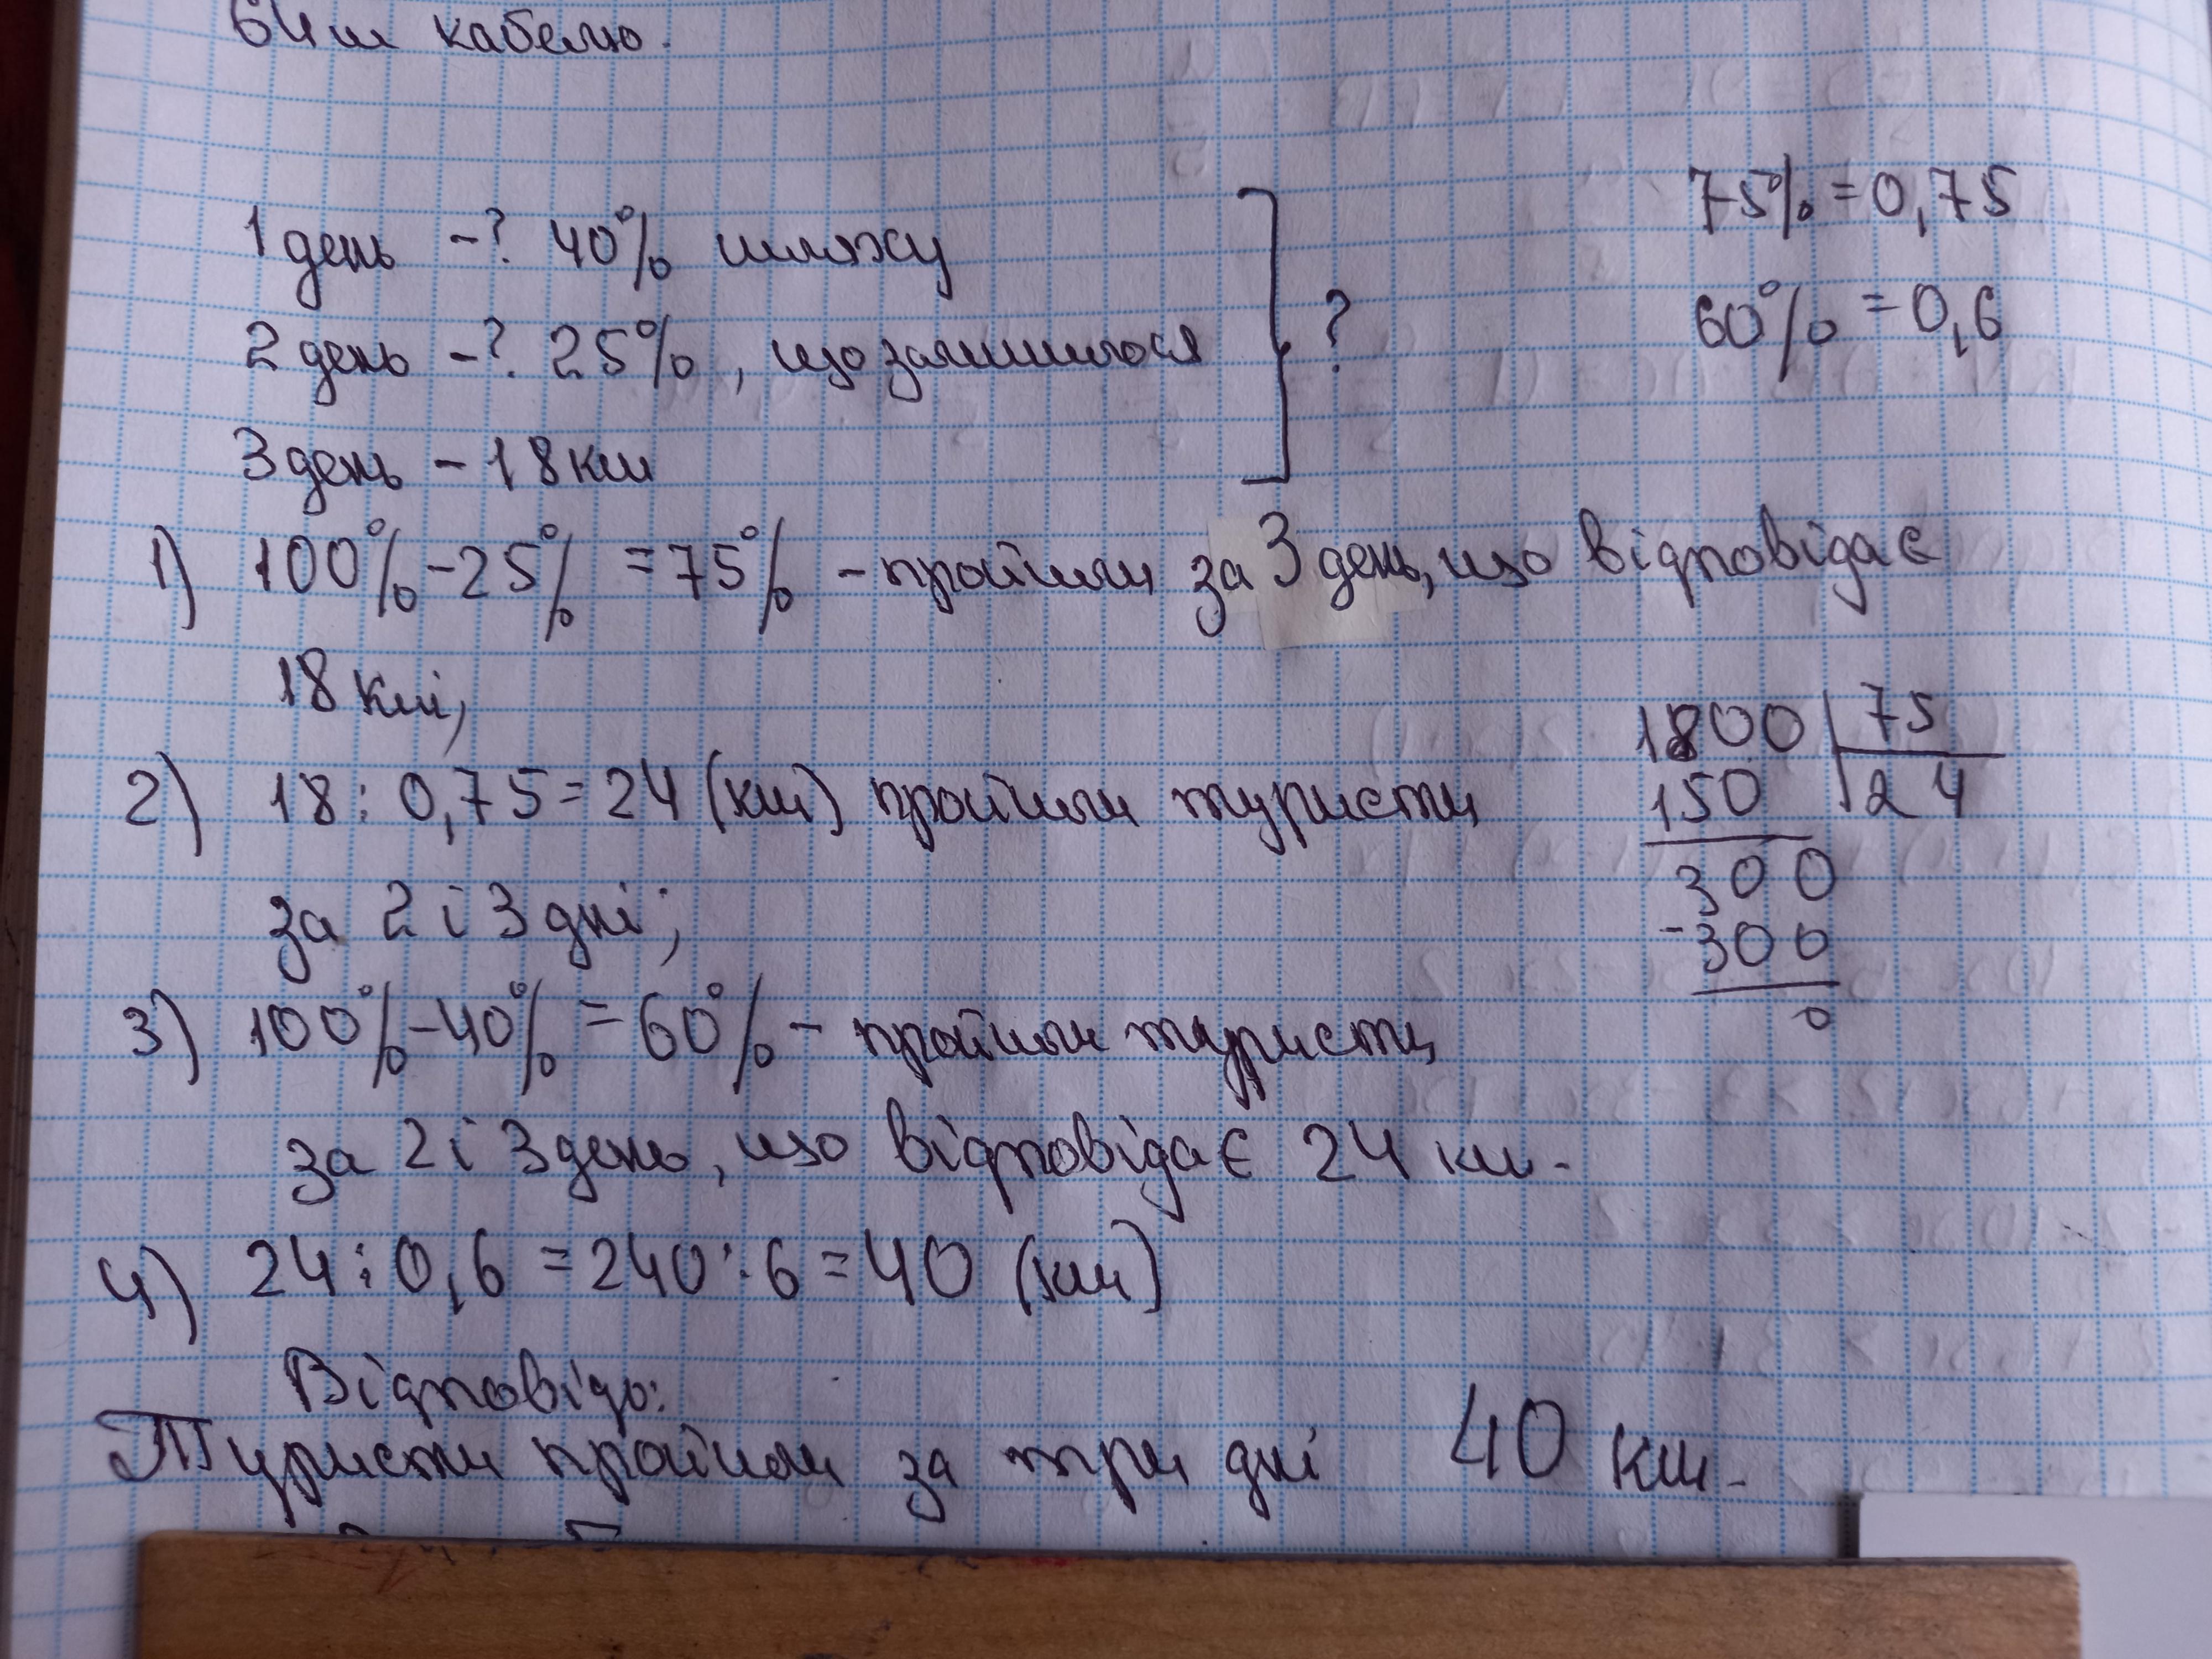 64 м кабелю.
75% = 0,75
1 день -? 40% шляху
?
60% = 0,6
2 день -? 25%, що залишилося
3 день - 18 км
1) 100% - 25% = 75% - пройшли за 3 день, що відповідає
18 км;
1800 | 75
2) 18 : 0,75 = 24 (км) пройшли туристи
150 24
300
за 2 і 3 дні;
-300
0
3) 100% - 40% = 60% - пройшли туристи
за 2 і 3 день, що відповідає 24 км.
4) 24 : 0,6 = 240 : 6 = 40 (км)
Відповідь:
Туристи пройшли за три дні 40 км.